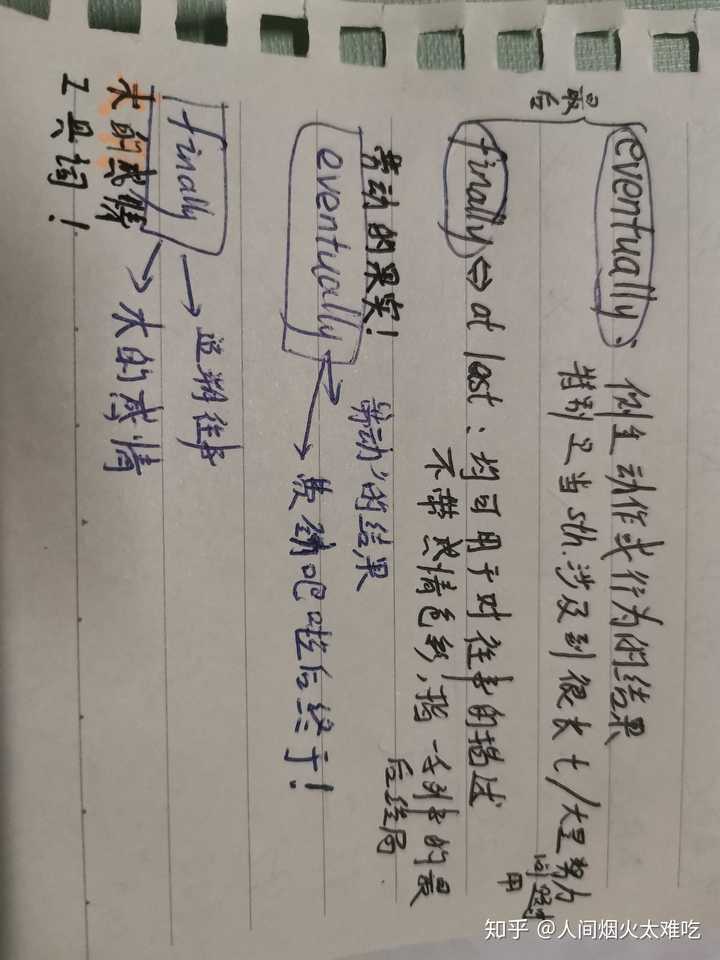 最后
eventually: 侧重动作或行为的结果
特别是当sth.涉及到很长t/大量努力
问题时
用
finally ⇔ at last: 均可用于对往事的描述
不带感情色彩,指一系列事的最
后结局
劳动的果实!
eventually → 劳动的结果
→ 费劲吧啦后终于!
finally → 追溯往事
→ 木的感情
木的感情
工具词!
知乎 @人间烟火太难吃